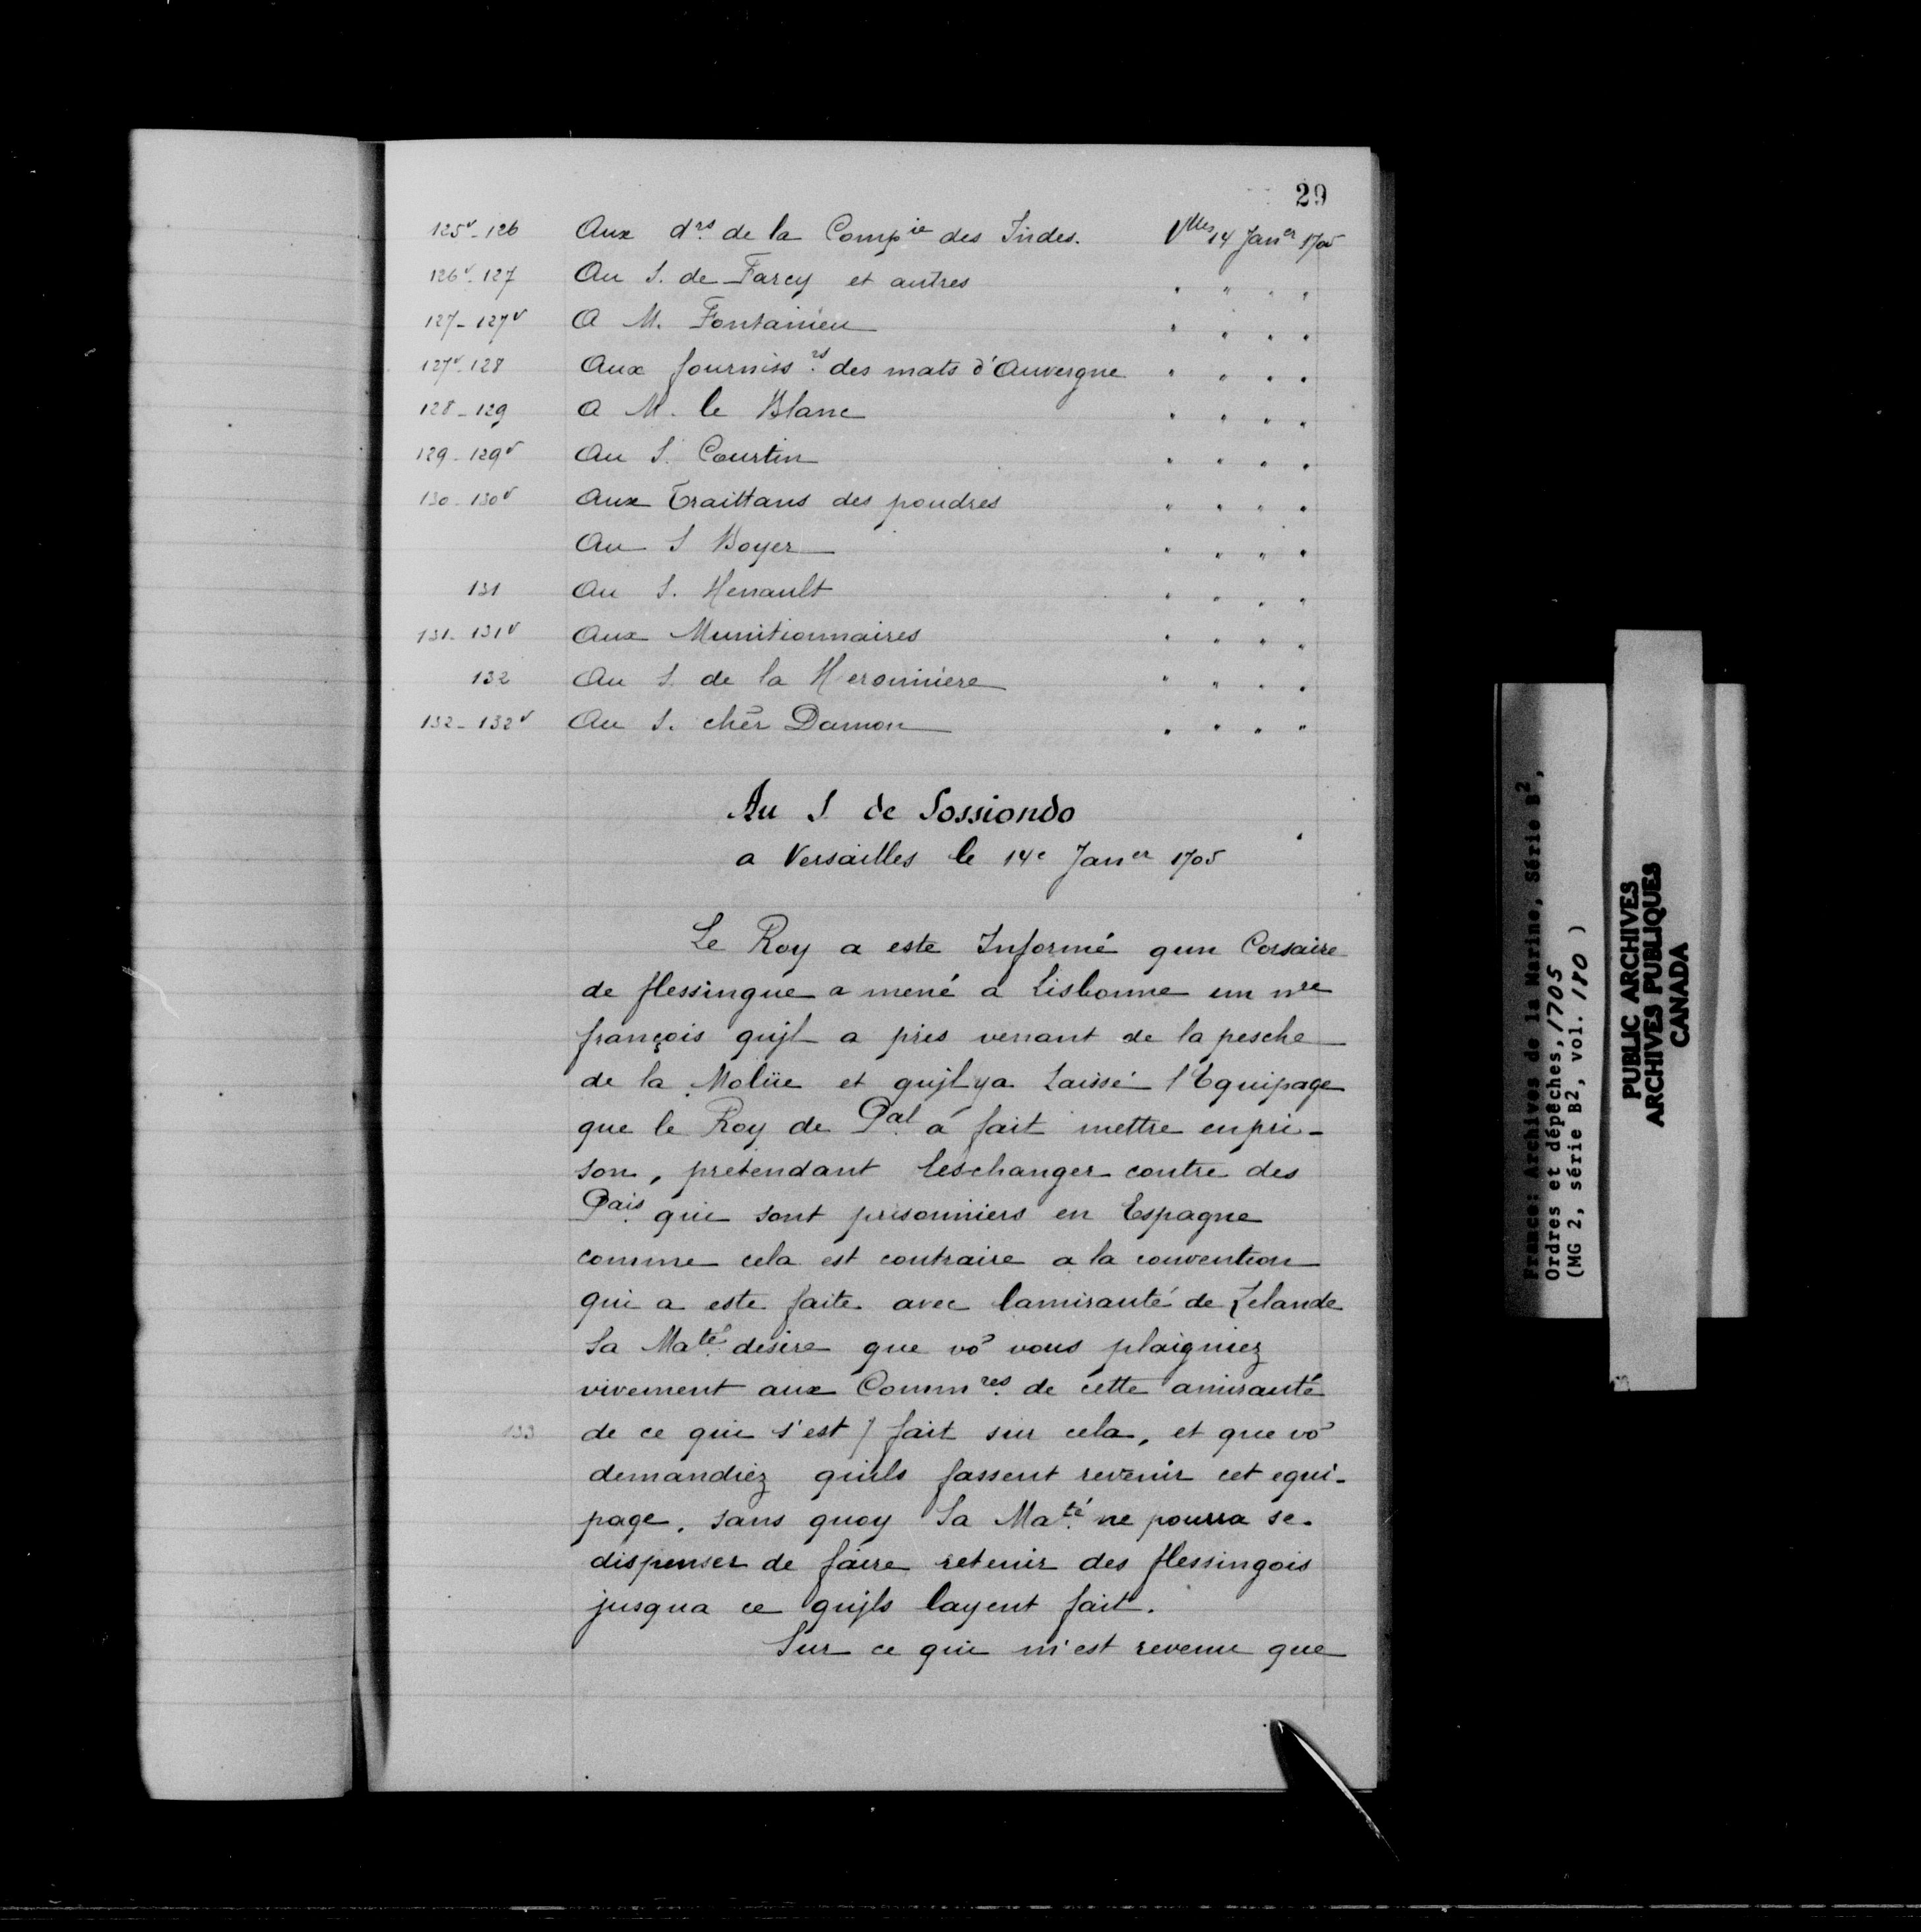 29
125v-126 Aux drs de la Compie des Indes. Vlles 14 Janer 1705
126v-127 Au S. de Farcy et autres " " " "
127-127v A M. Fontanieu " " " "
127v-128 Aux fournissrs des mats d'Auvergne " " " "
128-129 A M. le Blanc " " " "
129-129v Au S. Courtin " " " "
130-130v Aux Traittans des poudres " " " "
Au S Boyer " " " "
131 Au S. Henault " " " "
131-131v Aux Munitionnaires " " " "
132 Au S. de la Heronniere " " " "
132-132v Au S. cher Damon " " " "
Au S de Sossiondo
a Versailles le 14e Janer 1705
Le Roy a este Informé qun Corsaire
de flessingue a mené a Lisbonne un nre
françois qujl a pris venant de la pesche
de la Molüe et qujlya Laissé l'Equipage
que le Roy de Pal a fait mettre enpri-
son, pretendant leschanger contre des
Pais qui sont prisonniers en Espagne
comme cela est contraire a la convention
qui a este faite avec lamirauté de Zelande
Sa Maté desire que vo vous plaigniez
vivement aux Commres de cette amirauté
133 de ce qui s'est / fait sur cela, et que vo
demandiez quils fassent revenir cet equi-
page, sans quoy Sa Maté ne pourra se-
dispenser de faire retenir des flessingois
jusqua ce qujls layent fait.
Sur ce qui m'est revenu que
France: Archives de la Marine, Série B2,
Ordres et dépêches, 1705
(MG 2, série B2, vol. 180 )
PUBLIC ARCHIVES
ARCHIVES PUBLIQUES
CANADA